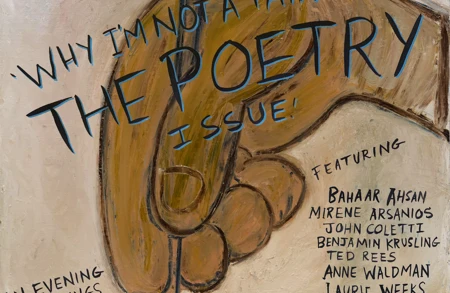 'WHY I'M NOT A
THE POETRY
ISSUE!
FEATURING
BAHAAR AHSAN
MIRENE ARSANIOS
JOHN COLETTI
BENJAMIN KRUSLING
TED REES
ANNE WALDMAN
LAURIE WEEKS
EVENING